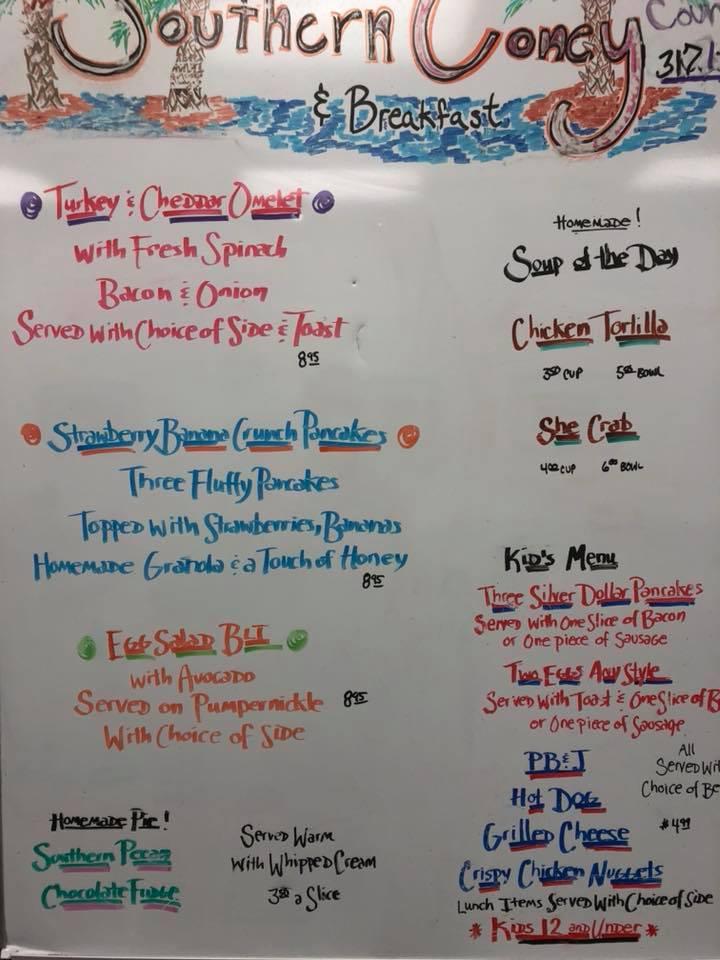 Southern Coney
& Breakfast
Turkey & Cheddar Omelet
with Fresh Spinach
Bacon & Onion
Served with Choice of Side & Toast
8.95
Strawberry Banana Crunch Pancakes
Three Fluffy Pancakes
Topped with Strawberries, Bananas
Homemade Granola & a Touch of Honey
8.95
Egg Salad BLT
with Avocado
Served on Pumpernickle 8.95
With Choice of Side
Homemade Pie!
Southern Pecan
Chocolate Fudge
Served Warm
with Whipped Cream
a Slice
Homemade!
Soup of the Day
Chicken Tortilla
cup bowl
She Crab
cup bowl
Kid's Menu
Three Silver Dollar Pancakes
Served with One Slice of Bacon
or One piece of Sausage
Two Eggs Any Style
Served with Toast & One Slice of B
or One piece of Sausage
PB&J
Hot Dog
Grilled Cheese
Crispy Chicken Nuggets
All
Served Wit
Choice of Be
$4.99
Lunch Items Served With Choice of Side
* Kids 12 and Under *